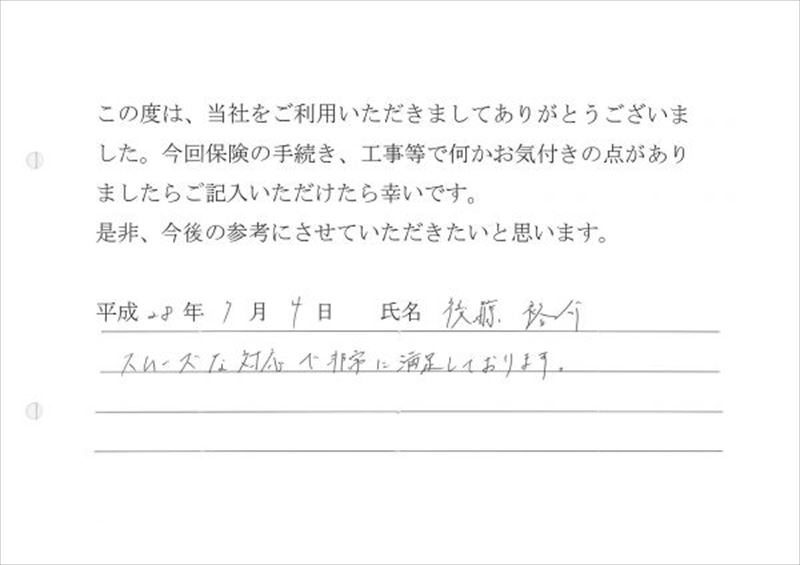 この度は、当社をご利用いただきましてありがとうございま
した。今回保険の手続き、工事等で何かお気付きの点があり
ましたらご記入いただけたら幸いです。
是非、今後の参考にさせていただきたいと思います。
平成28年7月4日 氏名 後藤 裕介
スムーズな対応で非常に満足しております。